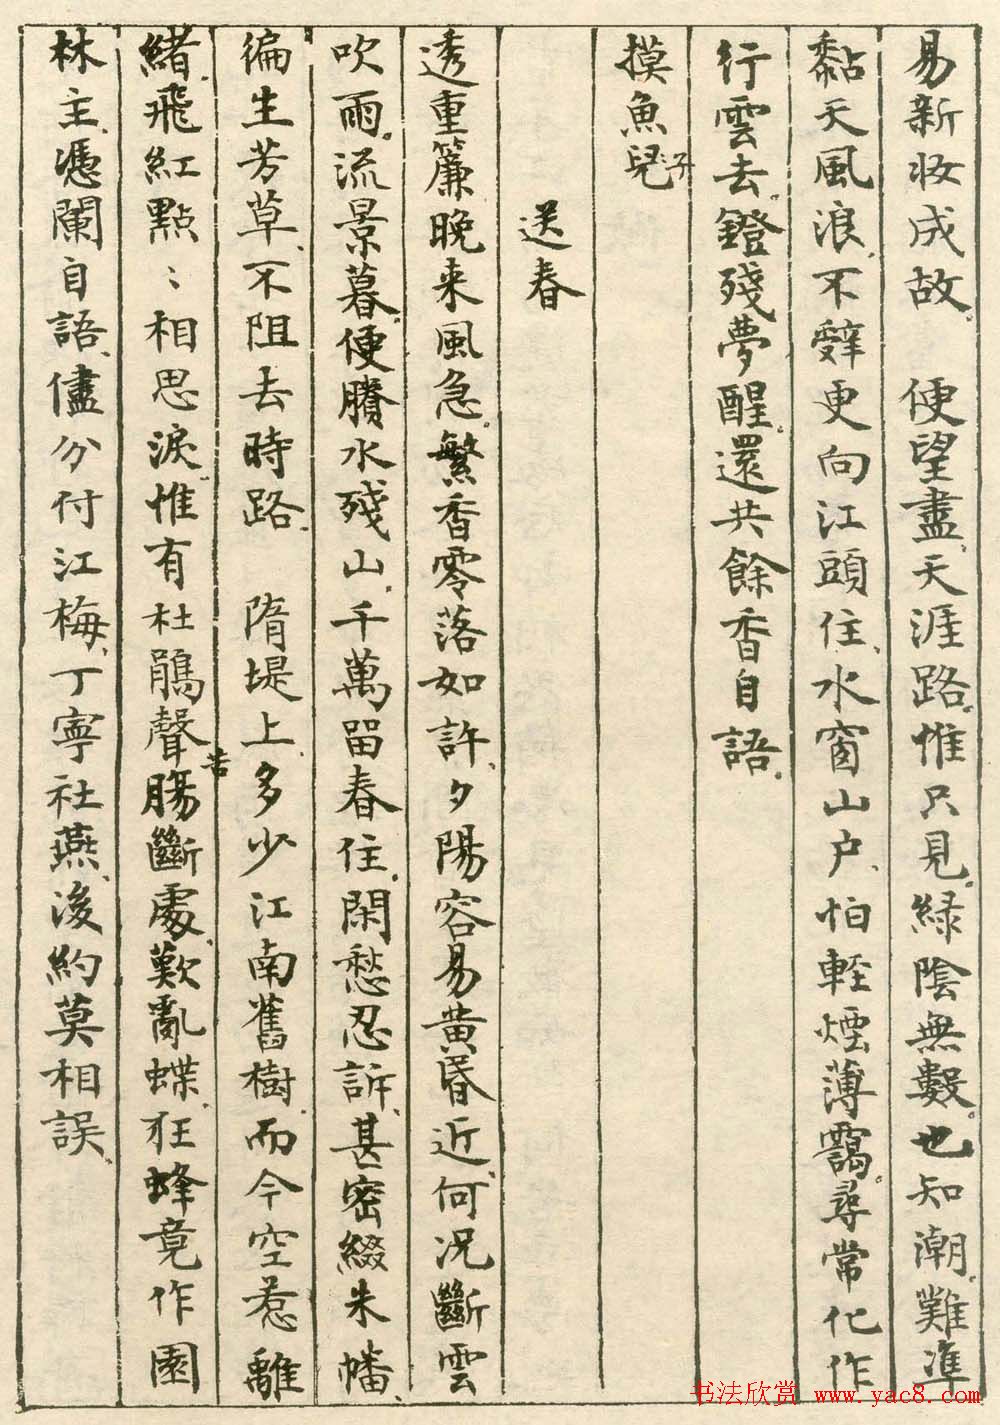 易新妆成故。　便望盡、天涯路。惟只見、緑陰無數。也知潮難準
黏天風浪、不辤更向江頭住、水窗山户、怕輕煙薄靄。尋常化作
行雲去。鐙殘夢醒。還共餘香自語。
摸魚兒子
送春
透重簾晚来風急。繁香零落如許、夕陽容易黄昏近、何況斷雲
吹雨。流景暮。便賸水殘山、千萬留春住。閑愁忍訴、甚密綴朱幡、
徧生芳草、不阻去時路。　隋堤上、多少江南舊樹。而今空惹離
緒。飛紅點〻相思淚。惟有杜鵑聲苦腸斷處。歎亂蝶、狂蜂竟作園
林主、憑闌自語、儘分付江梅、丁寧社燕、後約莫相誤、
书法欣赏 www.yac8.com